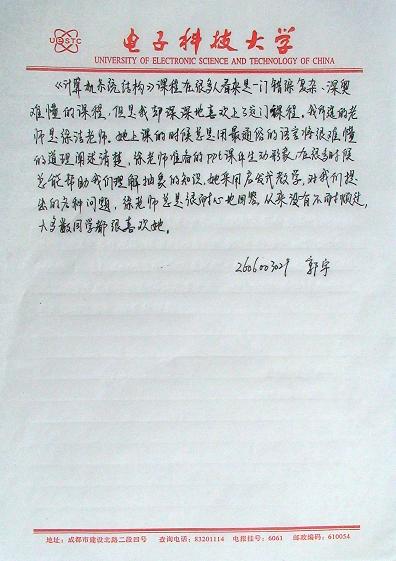 UESTC
电子科技大学
UNIVERSITY OF ELECTRONIC SCIENCE AND TECHNOLOGY OF CHINA
《计算机系统结构》课程在很多人看来是一门错综复杂、深奥
难懂的课程,但是我却深深地喜欢上了这门课程。我所选的老
师是徐洁老师。她上课的时候总是用最通俗的语言将很难懂
的道理阐述清楚。徐老师准备的ppt课件生动形象,在很多时候
总能帮助我们理解抽象的知识。她采用启发式教学,对我们提
出的各种问题,徐老师总是很耐心地回答,从来没有不耐烦过,
大多数同学都很喜欢她。
2606003029 郭宇
地址:成都市建设北路二段四号 查询电话:83201114 电报挂号:6061 邮政编码:610054